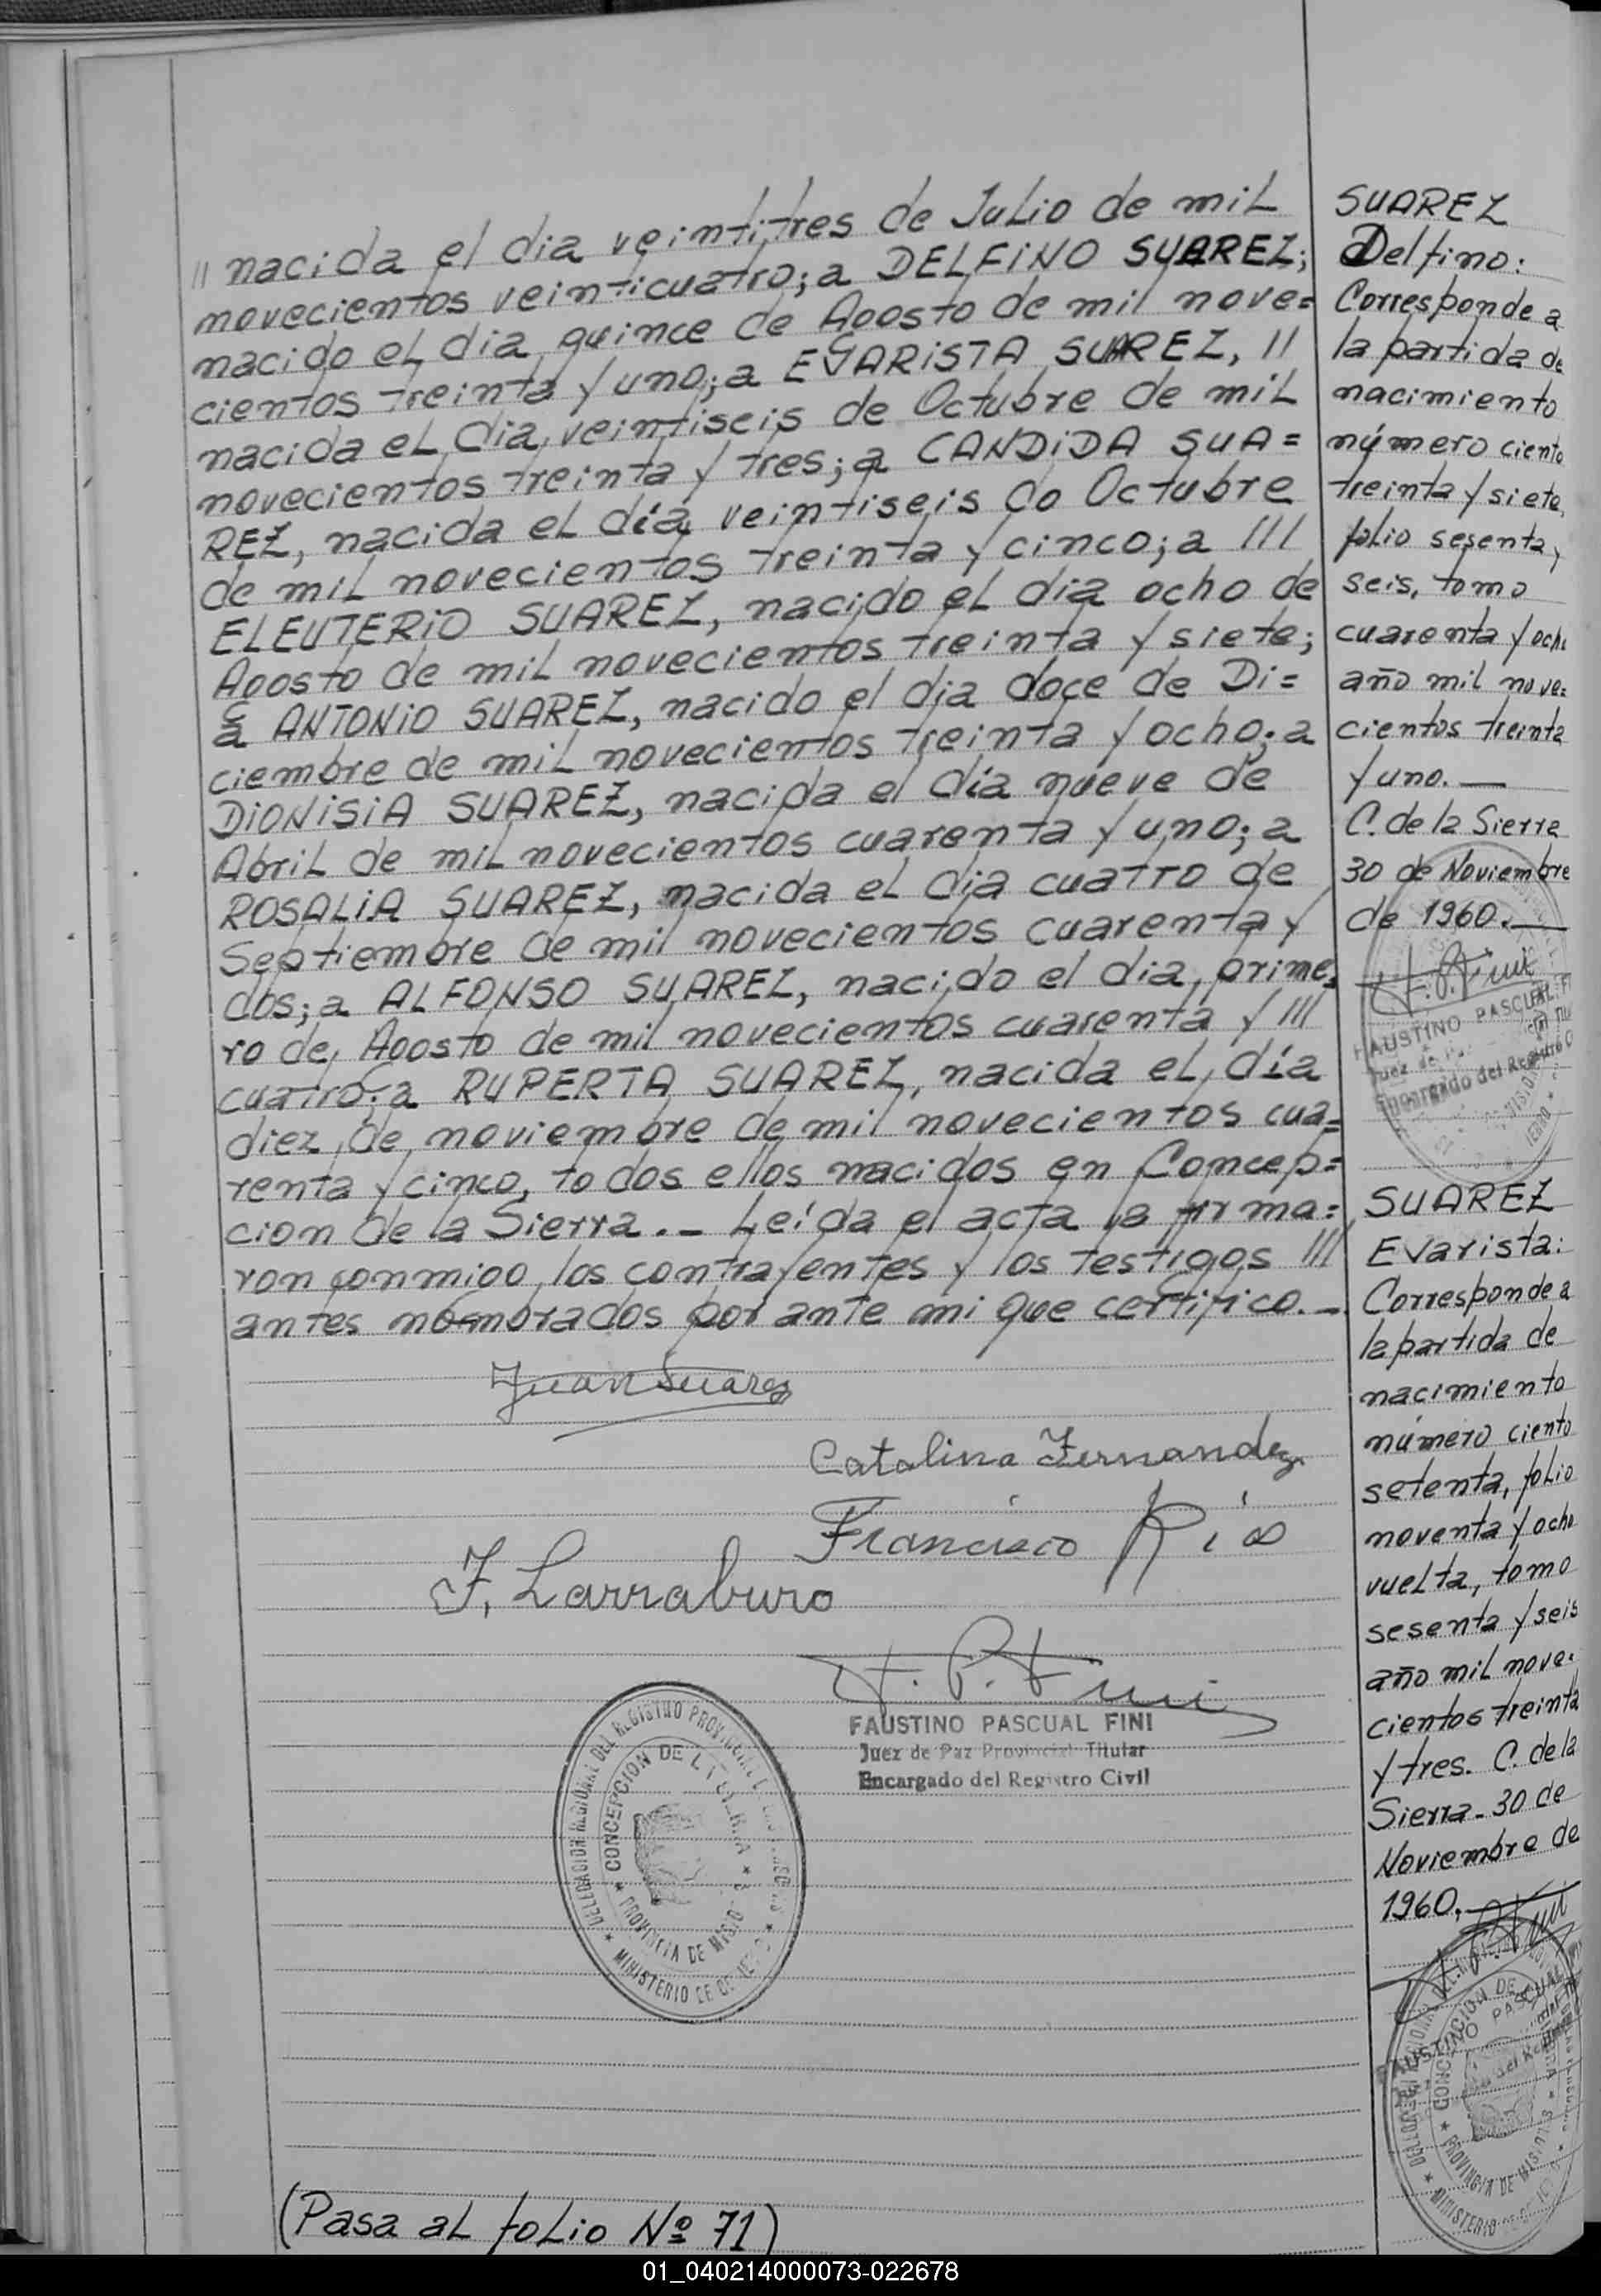 // nacida el dia veintitres de Julio de mil
novecientos veinticuatro; a DELFINO SUAREZ;
nacido el dia quince de Agosto de mil nove=
cientos treinta y uno; a EVARISTA SUAREZ, //
nacida el dia veintiseis de Octubre de mil
novecientos treinta y tres; a CANDIDA SUA=
REZ, nacida el día veintiseis de Octubre
de mil novecientos treinta y cinco; a ///
ELEUTERIO SUAREZ, nacido el dia ocho de
Agosto de mil novecientos treinta y siete;
a ANTONIO SUAREZ, nacido el dia doce de Di=
ciembre de mil novecientos treinta y ocho; a
DIONISIA SUAREZ, nacida el día nueve de
Abril de mil novecientos cuarenta y uno; a
ROSALIA SUAREZ, nacida el dia cuatro de
Septiembre de mil novecientos cuarenta y
dos; a ALFONSO SUAREZ, nacido el dia prime=
ro de Agosto de mil novecientos cuarenta y ///
cuatro; a RUPERTA SUAREZ, nacida el día
diez de noviembre de mil novecientos cua=
renta y cinco, todos ellos nacidos en Concep=
cion de la Sierra.- Leída el acta la firma=
ron conmigo los contrayentes y los testigos ///
antes nombrados por ante mi que certifico.-
Juan Suarez
Catalina Fernandez
Francisco Rios
F. Larraburo
F. P. Fini
FAUSTINO PASCUAL FINI
Juez de Paz Provincial Titular
Encargado del Registro Civil
DELEGACION REGIONAL DEL REGISTRO PROVINCIAL DE LAS PERSONAS
CONCEPCION DE LA SIERRA
PROVINCIA DE MISIONES
MINISTERIO DE GOBIERNO
(Pasa al folio Nº 71)
SUAREZ
Delfino:
Corresponde a
la partida de
nacimiento
número ciento
treinta y siete,
folio sesenta y
seis, tomo
cuarenta y ocho
año mil nove=
cientos treinta
y uno.—
C. de la Sierra
30 de Noviembre
de 1960.—
F. P. Fini
FAUSTINO PASCUAL
Juez de
Encargado del Registro
SUAREZ
Evarista:
Corresponde a
la partida de
nacimiento
número ciento
setenta, folio
noventa y ocho
vuelta, tomo
sesenta y seis
año mil nove-
cientos treinta
y tres. C. de la
Sierra - 30 de
Noviembre de
1960.—
F. P. Fini
FAUSTINO PASCUAL
CONCEPCION DE
PROVINCIA DE MISIONES
MINISTERIO
01_040214000073-022678